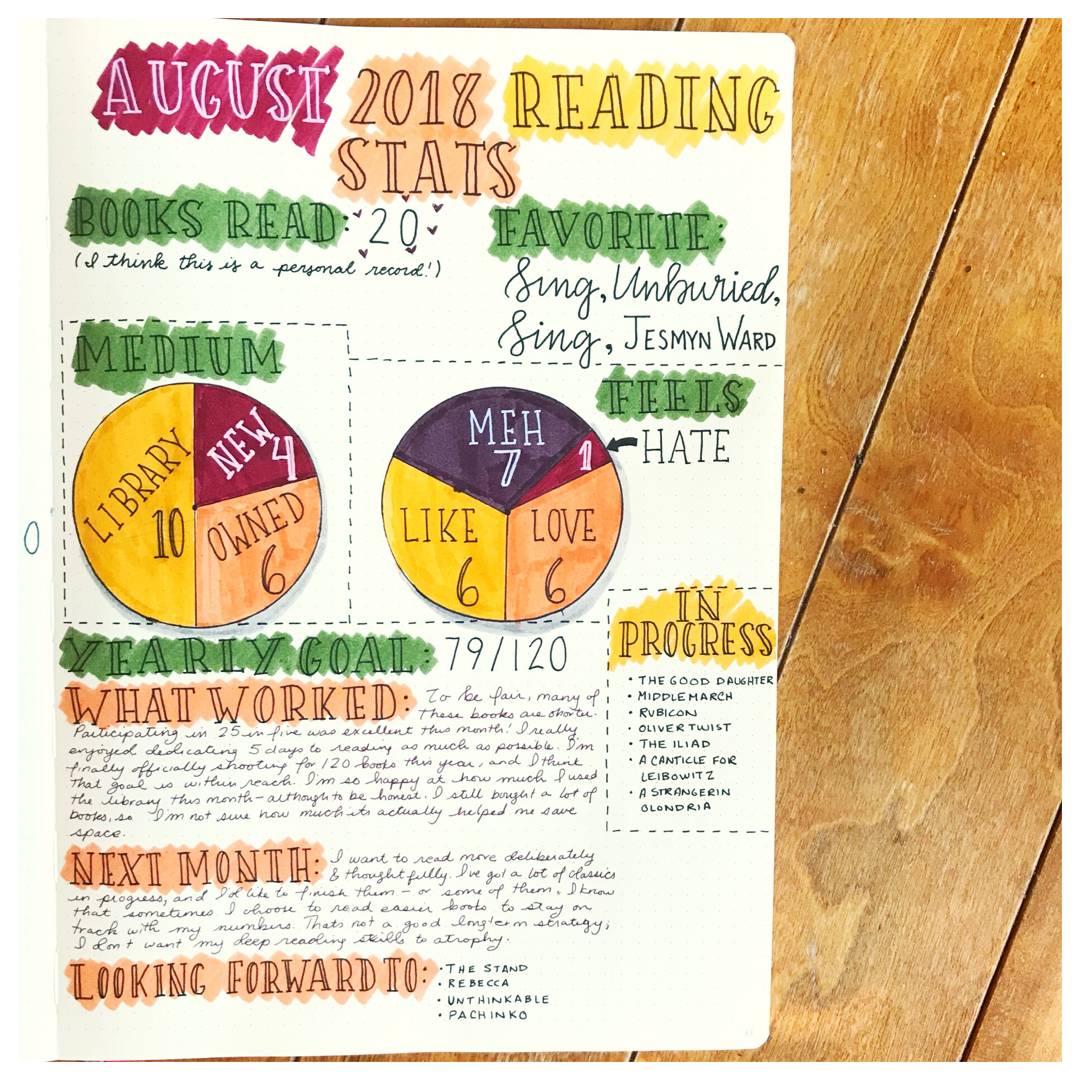 AUGUST 2018 READING
STATS
BOOKS READ: 20
(I think this is a personal record!)
FAVORITE:
Sing, Unburied,
Sing, JESMYN WARD
MEDIUM
LIBRARY
10
NEW
4
OWNED
6
FEELS
MEH
7
1
HATE
LIKE
6
LOVE
6
YEARLY GOAL: 79/120
WHAT WORKED: To be fair, many of
these books are shorter.
Participating in 25 in five was excellent this month! I really
enjoyed dedicating 5 days to reading as much as possible. I'm
finally officially shooting for 120 books this year, and I think
that goal is within reach. I'm so happy at how much I used
the library this month - although to be honest, I still bought a lot of
books, so I'm not sure how much its actually helped me save
space.
IN
PROGRESS
• THE GOOD DAUGHTER
• MIDDLEMARCH
• RUBICON
• OLIVER TWIST
• THE ILIAD
• A CANTICLE FOR
LEIBOWITZ
• A STRANGER IN
OLONDRIA
NEXT MONTH: I want to read more deliberately
& thoughtfully. I've got a lot of classics
in progress, and I'd like to finish them - or some of them. I know
that sometimes I choose to read easier books to stay on
track with my numbers. Thats not a good longterm strategy;
I don't want my deep reading skills to atrophy.
LOOKING FORWARD TO: • THE STAND
• REBECCA
• UNTHINKABLE
• PACHINKO